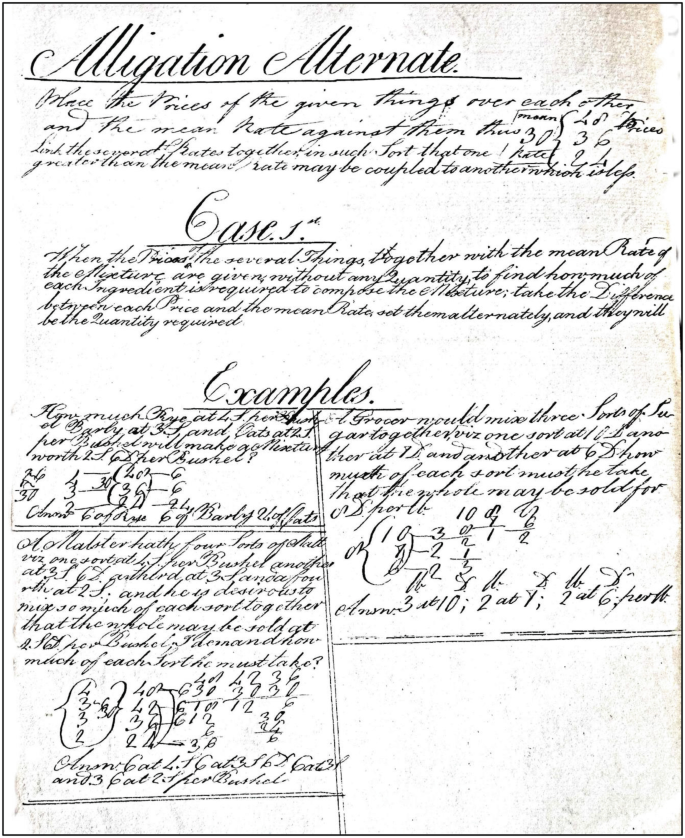 Alligation Alternate.
Place the Prices of the given things over each other
and the mean Rate against them thus
mean 48 Prices
30 36
Rate 24
Link the several Rates together, in such Sort that one
greater than the mean Rate may be coupled to another which is less.
Case. 1.st
When the Prices of the several Things, together with the mean Rate of
the Mixture are given, without any Quantity, to find how much of
each Ingredient is required to compose the Mixture; take the Difference
between each Price and the mean Rate, set them alternately, and they will
be the Quantity required.
Examples.
How much Rye at 4 S. per
Barly at 3 S, and Oats at 2 S
per Bushel will make a Mixture
worth 2 S. 6 D per Bushel?
2 6
30
Answr 6 of Rye 6 of Barly 24 of Oats
A Malster hath four Sorts of Malt
viz one sort at 4 S. per Bushel another
at 3 S. 6 D. a third at 3 S. and a fou
rth at 2 S; and he is desirous to
mix so much of each sort together
that the whole may be sold at
per Bushel, I demand how
much of each Sort he must take?
48 42 36
4 48 6 30 30 30
3 6 42 6 18 12 6
3 36 6 12
2 24 36
Answr 6 at 4 S 6 at 3 S 6 D 6 at 3 S
and 36 at 2 S per Bushel
A Grocer would mix three Sorts of Su
gar together, viz one sort at 10 D ano
ther at 7 D. and another at 6 D how
much of each sort must he take
that the whole may be sold for
8 D per lb.
10 8 8
10 3 8 7 6
8 7 2 2 1 2
6 2
lb. D lb. D lb D
Answr. 3 at 10; 2 at 7; 2 at 6; per lb.